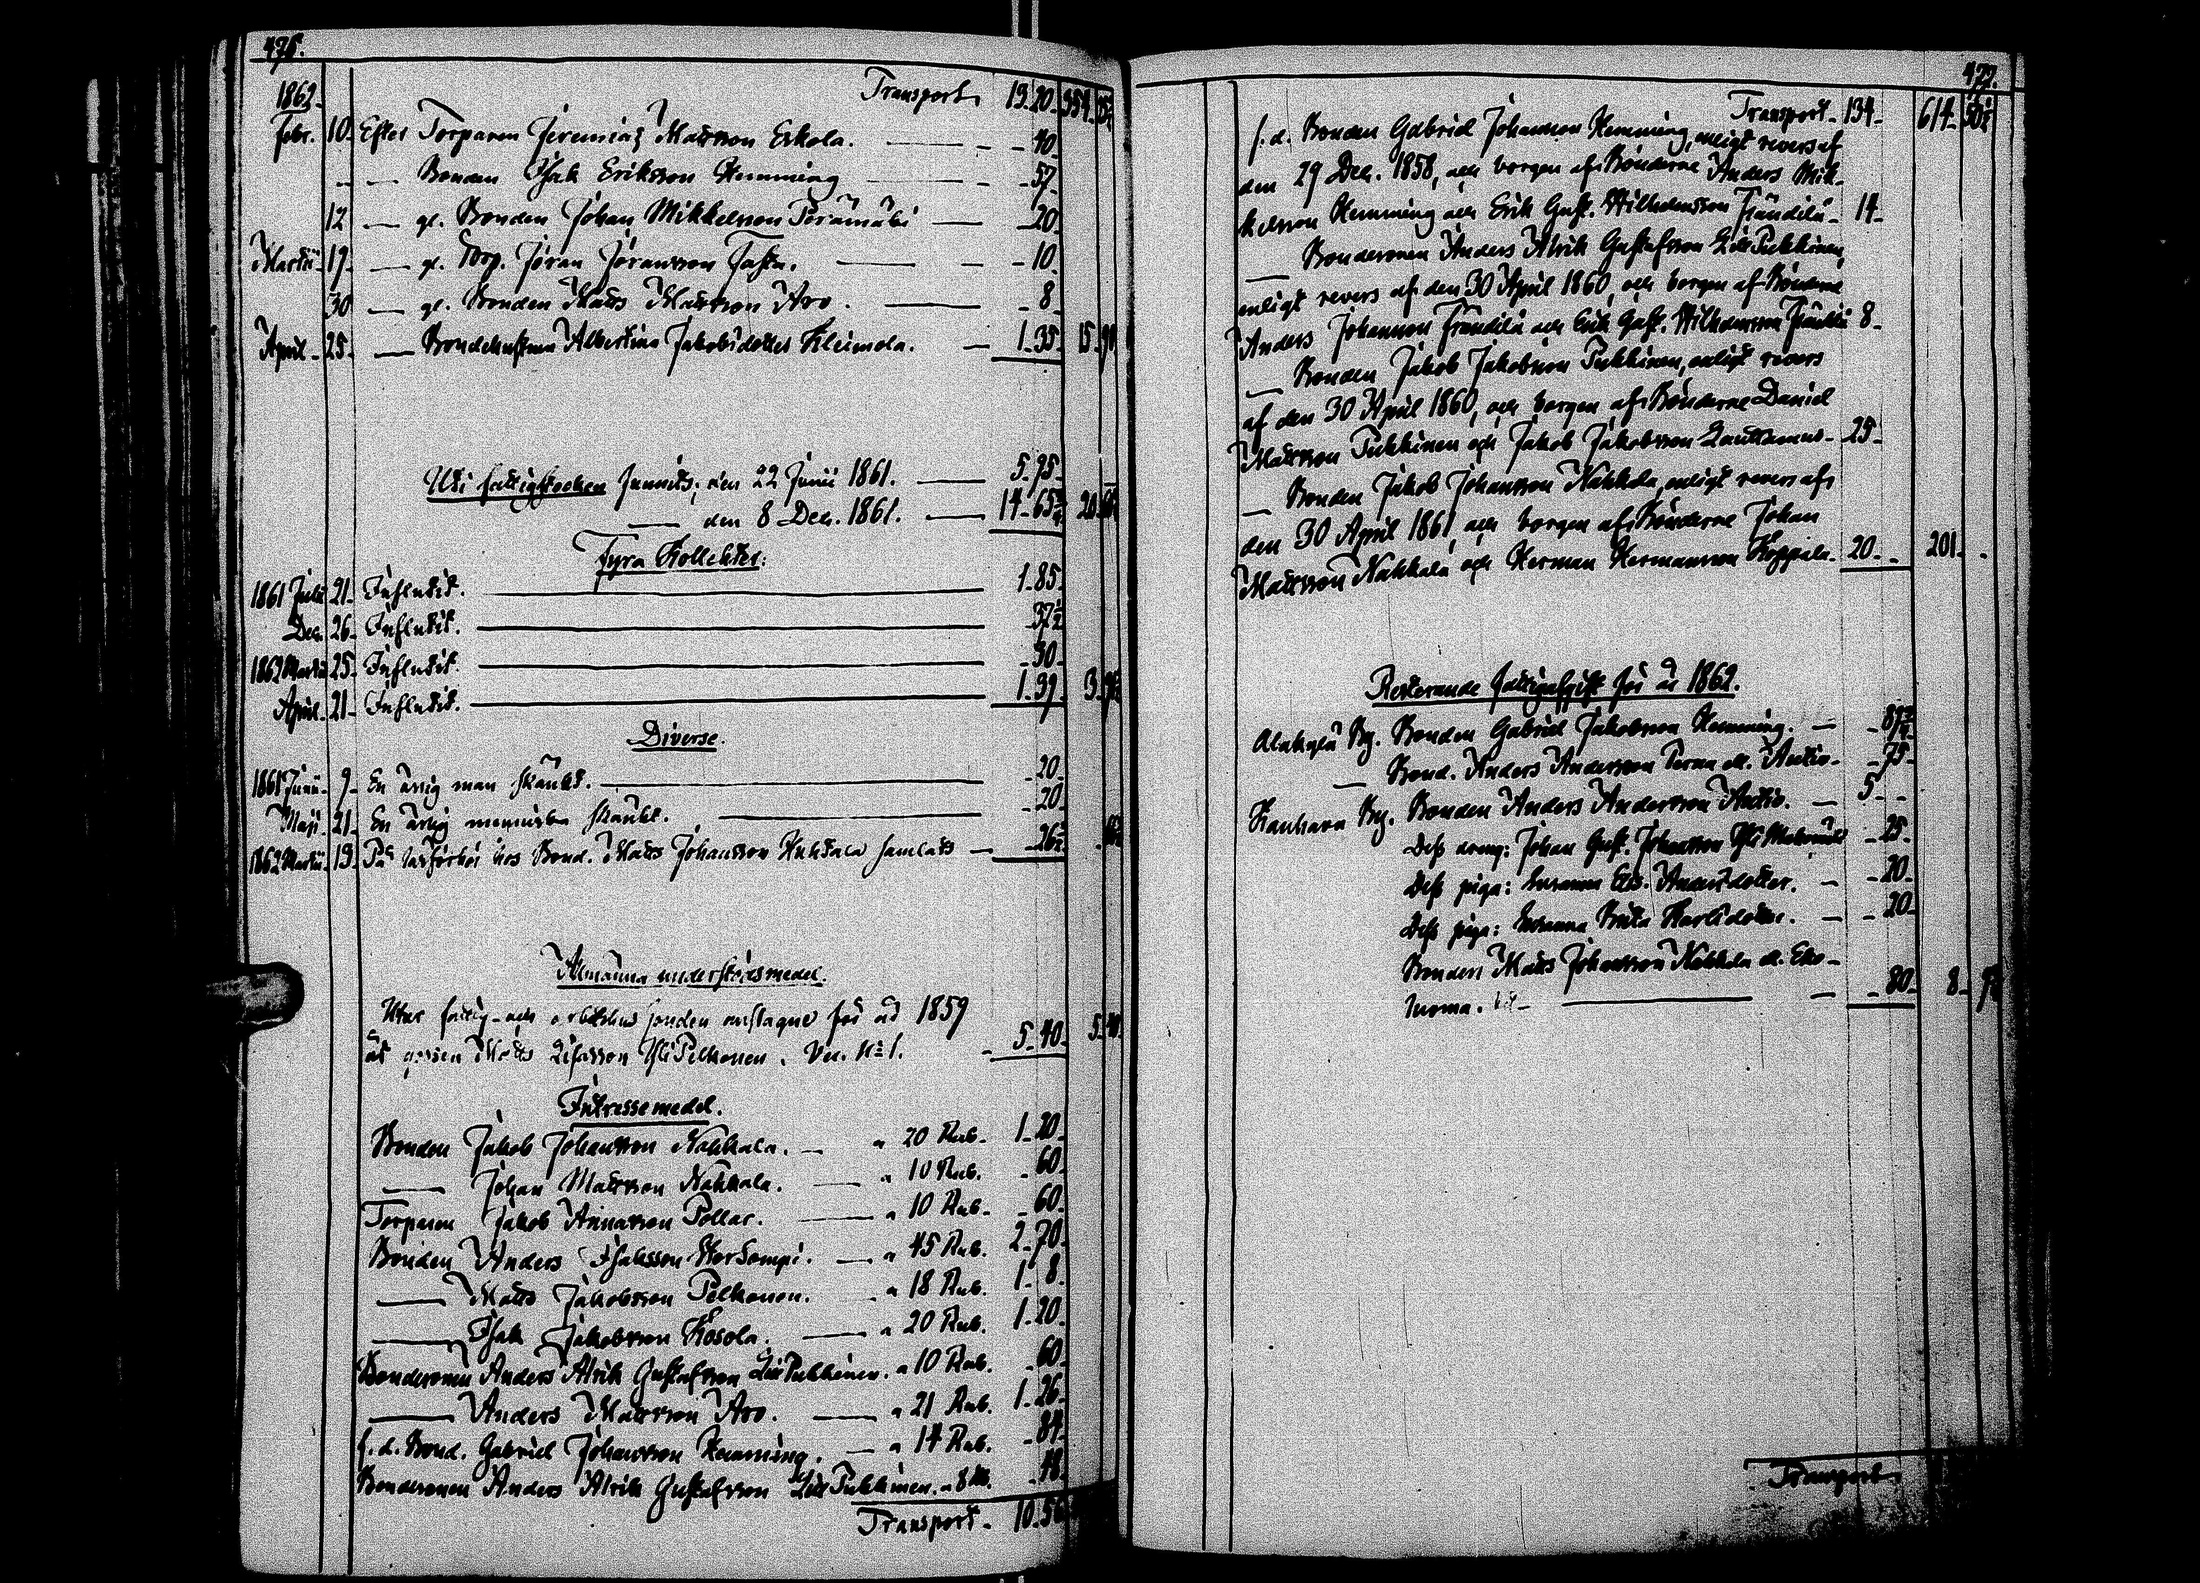 476.
1862.
Transport 13. 20. 354.
Febr. 10. Efter Torparen Jeremias Mattsson Eskola. — 40.
— Bonden Isak Eriksson Hemming — 57.
12 — gl. Bonden Johan Mikkelsson Perämäki — 20.
Martii 17. — gl. Torp. Jöran Jöransson Passi. — 10.
30 — gl. Bonden Matts Mattsson Aro. — 8.
April 25. — Bondehustrun Albertina Jakobsdotter Kleimola. — 1. 35. 15. 90
Uti fattigstocken funnits, den 22 Junii 1861. — 5. 95.
— den 8 Dec. 1861. — 14. 65 20
Fyra Kollekter.
1861 Julii 21. Influtit. 1. 85.
Dec. 26. Influtit. 37½
1862 Martii 25. Influtit. 30.
April 21. Influtit. 1. 39. 3.
Diverse.
1861 Junii 9. En ärlig man skänkt. 20.
Maji 21. En ärlig menniska skänkt. 20.
1862 Martii 13. På läsförhör hos Bond. Matts Johansson Huhtala samlats — 26½
Allmänna understödsmedel.
Utur fattig- och arbetshus fonden anslagne för år 1859
åt gossen Matts Lisasson YliPelkonen. Ver. No 1. 5. 40. 5. 40.
Intressemedel.
Bonden Jakob Johansson Nahkala. — a 20 Rub. 1. 20.
— Johan Mattsson Nahkala. — a 10 Rub. 60.
Torparen Jakob Annasson Pollar. — a 10 Rub. 60.
Bonden Anders Isaksson Stortompi. — a 45 Rub. 2. 70.
— Matts Jakobsson Pelkonen. a 18 Rub. 1. 8.
— Isak Jakobsson Kosola. — a 20 Rub. 1. 20.
Bondesonen Anders Alrik Gustafsson LillPukkinen. a 10 Rub. 60.
— Anders Mattsson Aro. — a 21 Rub. 1. 26.
f. d. Bond. Gabriel Johansson Hemming. — a 14 Rub. 84.
Bondesonen Anders Alrik Gustafsson LillPukkinen. a 8 Rb. 48.
Transport. 10. 56
477.
Transport. 134. 614. 50½
f. d. Bonden Gabriel Johansson Hemming, enligt revers af
den 29 Dec. 1858, och borgen af Bönderne Anders Mik-
kelsson Hemming och Erik Gust. Wilhelmsson Frändilä. 14.
— Bondesonen Anders Alrik Gustafsson LillPukkinen,
enligt revers af den 30 April 1860, och borgen af Bönderne
Anders Johansson Frändilä och Erik Gust. Wilhelmsson Frändilä 8.
— Bonden Jakob Jakobsson Pukkinen, enligt revers
af den 30 April 1860, och borgen af Bönderne Daniel
Mattsson Pukkinen och Jakob Jakobsson Lauttamus. 25.
— Bonden Jakob Johansson Nahkala, enligt revers af
den 30 April 1861, och borgen af Bönderne Johan
Mattsson Nahkala och Herman Hermansson Koppela. 20. 201.
Resterande fattigafgift för år 1862.
Alakylä By. Bonden Gabriel Jakobsson Hemming. — 87½
— Bond. Anders Andersson Perna ell. Antio. 75.
Kauhava By. Bonden Anders Andersson Antio. — 5.
Dess dreng: Johan Gust. Johansson 25.
Dess piga: Susanna Lis. Andersdotter. — 20.
Dess piga: Susanna Brita Karlsdotter. — 20.
Bonden Matts Johansson Nahkala d. Eko-
luoma. — 80. 8.
Transport